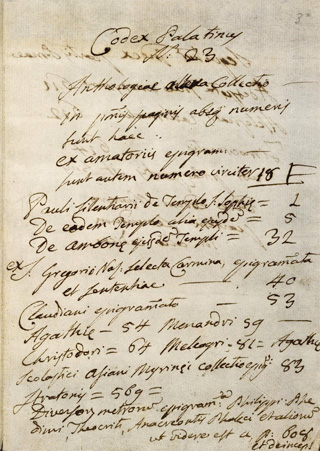 Codex Palatinus
N. 23
Anthologiae altera Collectio
in primis paginis absq numeris
sunt haec :.
ex amatoriis epigram
sunt autem numero circiter 18
Pauli Silentiarii de Templo S. Sophie = 1
De eodem Templo alia = 5
De ambone ejusde Templi = 32
ex S. Gregorii Naz. selecta Carmina, epigramata
et sententiae — 40
Claudiani epigramata — 53
Agathie — 54 Menandri 59 —
Christodori = 64 Meleagri = 81 = Agathie
scolastici Asiani Myrinei collectio 83
Stratonis = 569 =
Diversor metrorum epigram Philippi Phe
dimi, Theocriti, Anacreontis Phaleci et aliorum
ut videre est a p: 608
et deinceps